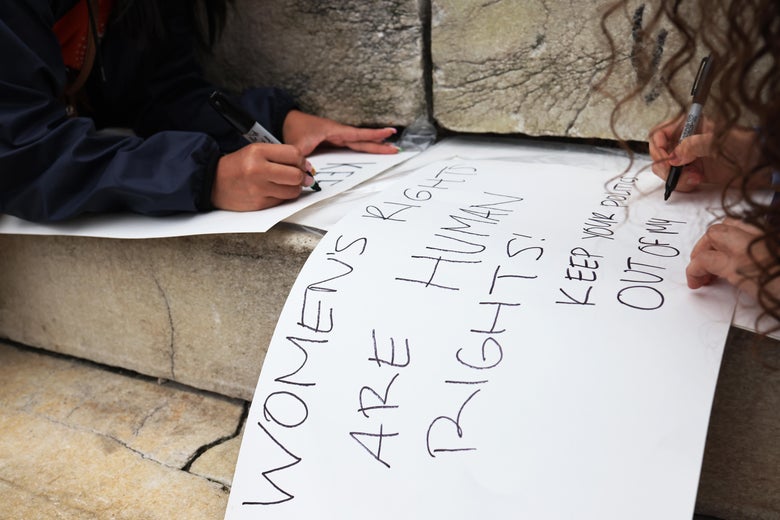 WOMEN'S RIGHTS
ARE HUMAN
RIGHTS!
KEEP YOUR POLITICS
OUT OF MY
KE